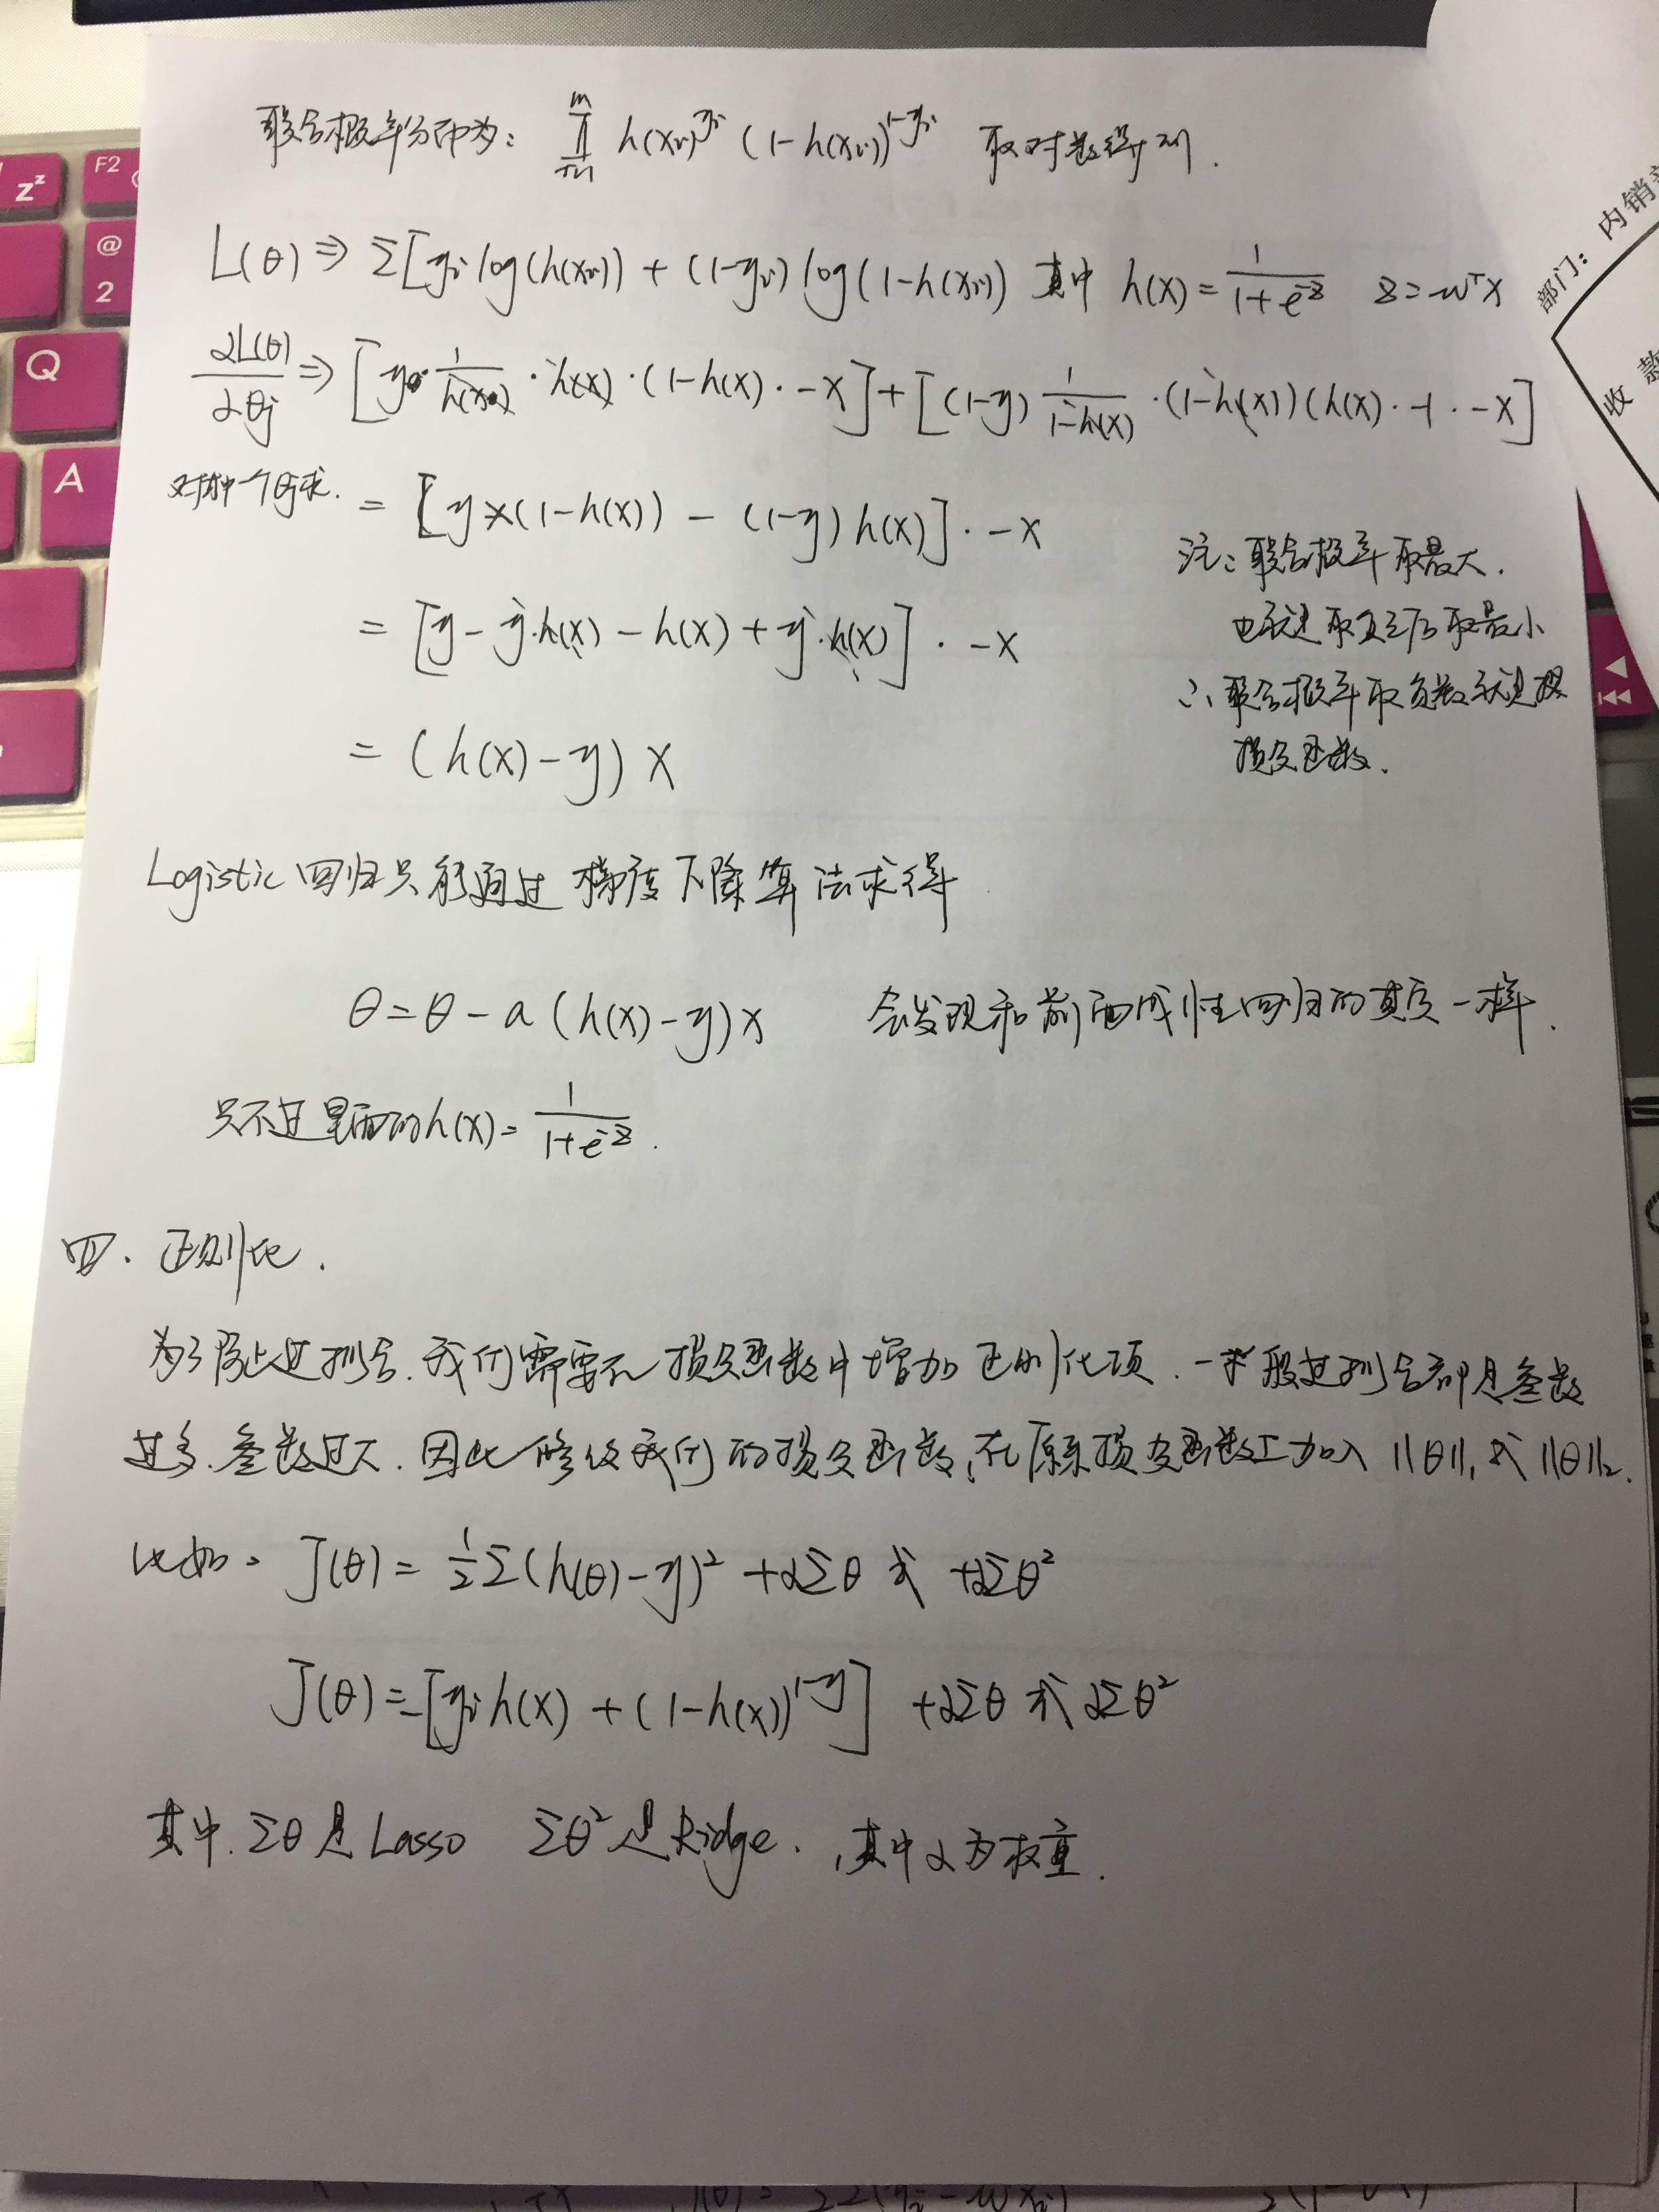 联合概率分布为: ∏_{i=1}^{m} h(xi)^{yi} (1-h(xi))^{1-yi} 取对数得到.
L(θ) ⇒ Σ[yi log(h(xi)) + (1-yi) log(1-h(xi)) 其中 h(x) = 1/(1+e^{-z}) z = w^T x
∂L(θ)/∂θj ⇒ [y · 1/h(x) · h(x) · (1-h(x) · -x] + [(1-y) 1/(1-h(x)) · (1-h(x))(h(x) · -1 · -x]
对每一个θj求. = [y×(1-h(x)) - (1-y) h(x)] · -x
= [y - y·h(x) - h(x) + y·h(x)] · -x
= (h(x)-y) x
注: 联合概率取最大.
也就是取负之后取最小
∴ 联合概率取负数就是
损失函数.
Logistic 回归只能通过梯度下降算法求得
θ = θ - a (h(x)-y)x 会发现和前面线性回归的其实一样.
只不过里面的h(x) = 1/(1+e^{-z}).
四. 正则化.
为了防止过拟合. 我们需要在损失函数中增加正则化项. 一般过拟合都是参数
过多. 参数过大. 因此修改我们的损失函数, 在原来损失函数上加入 ||θ||₁ 或 ||θ||₂.
比如: J(θ) = 1/2 Σ(h(θ)-y)² + αΣθ 或 +αΣθ²
J(θ) = -[yi h(x) + (1-h(x))^{1-y}] + αΣθ 或 αΣθ²
其中. Σθ 是 Lasso Σθ² 是 Ridge. , 其中 α 为权重.
F2
zᶻ
@
2
Q
A
部门: 内销
收 款